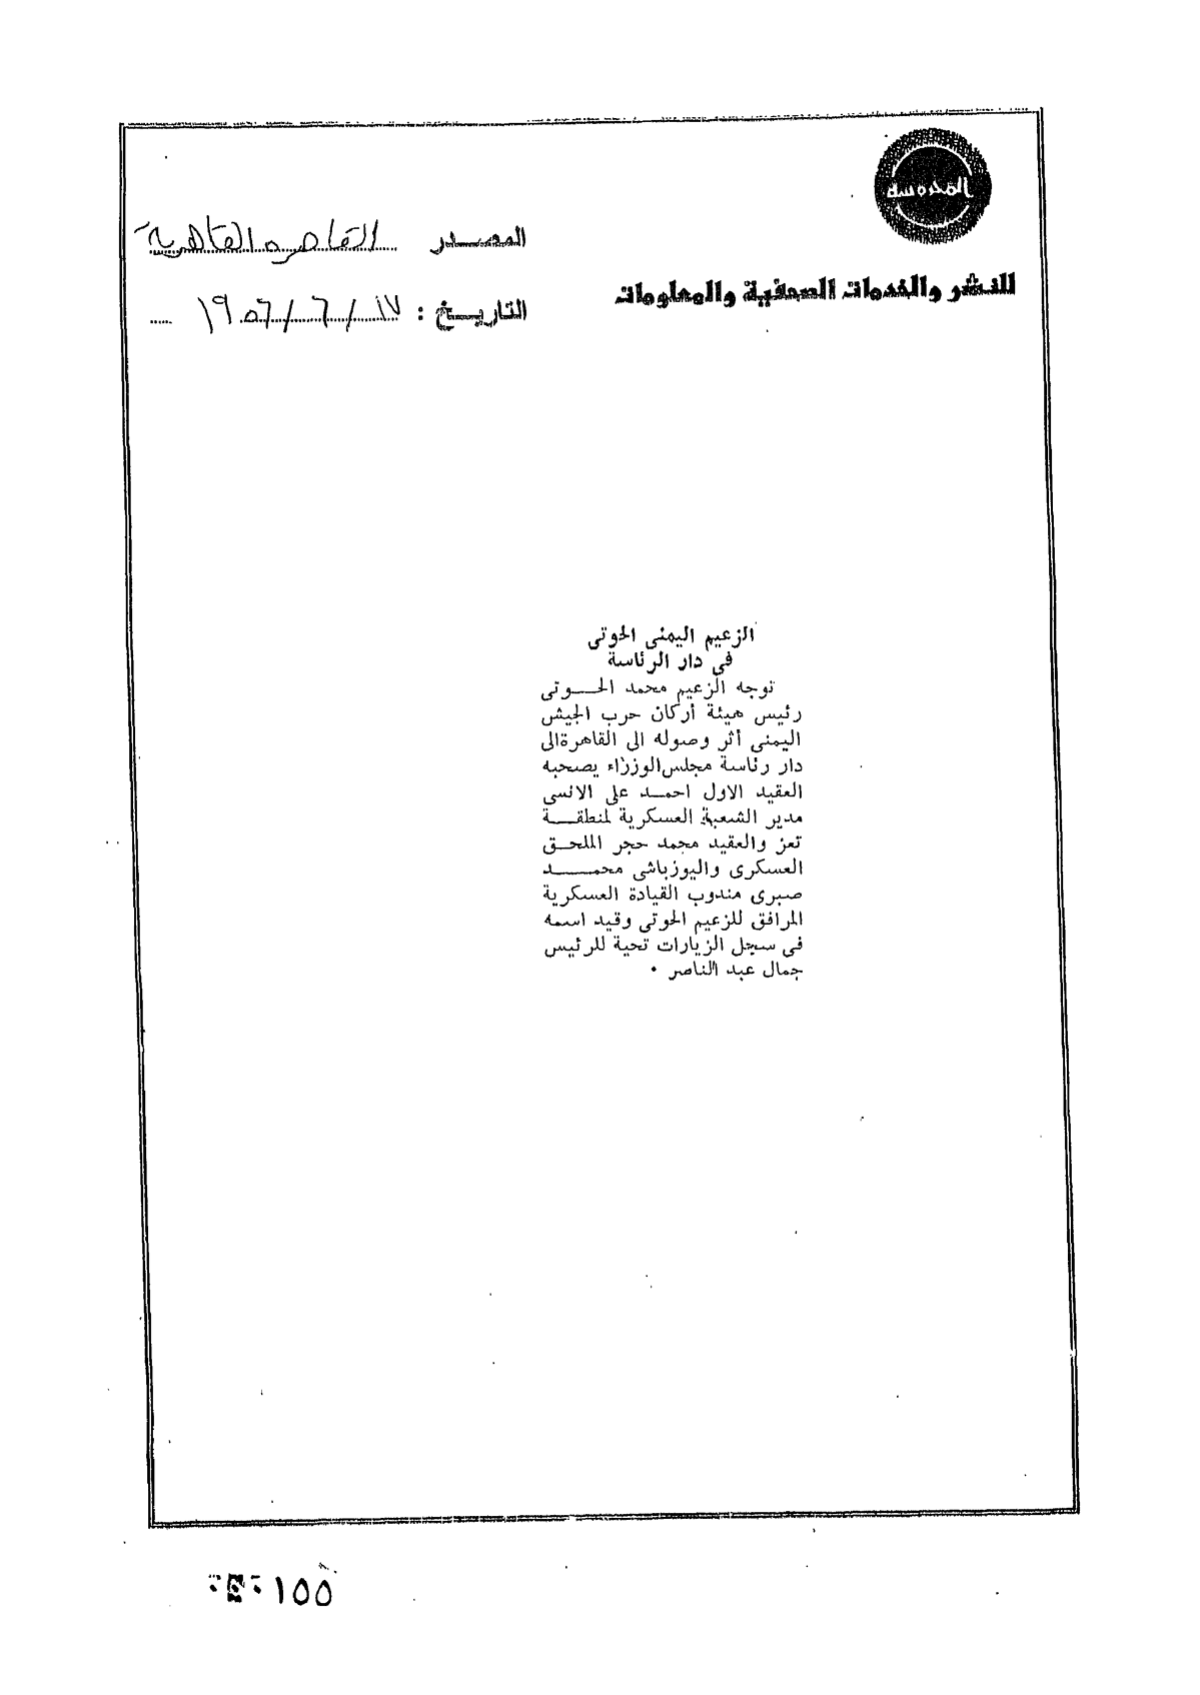 المحروسة
للنشر والخدمات الصحفية والمعلومات
المصدر القاهرة القاهرية
التاريخ : ١٧ / ٦ / ١٩٥٦
الزعيم اليمنى الحوتى
فى دار الرئاسة
توجه الزعيم محمد الحوتى
رئيس هيئة أركان حرب الجيش
اليمنى أثر وصوله الى القاهرة الى
دار رئاسة مجلس الوزراء يصحبه
العقيد الاول احمد على الانسى
مدير الشعبة العسكرية لمنطقة
تعز والعقيد محمد حجر الملحق
العسكرى واليوزباشى محمد
صبرى مندوب القيادة العسكرية
المرافق للزعيم الحوتى وقيد اسمه
فى سجل الزيارات تحية للرئيس
جمال عبد الناصر .
١٥٥